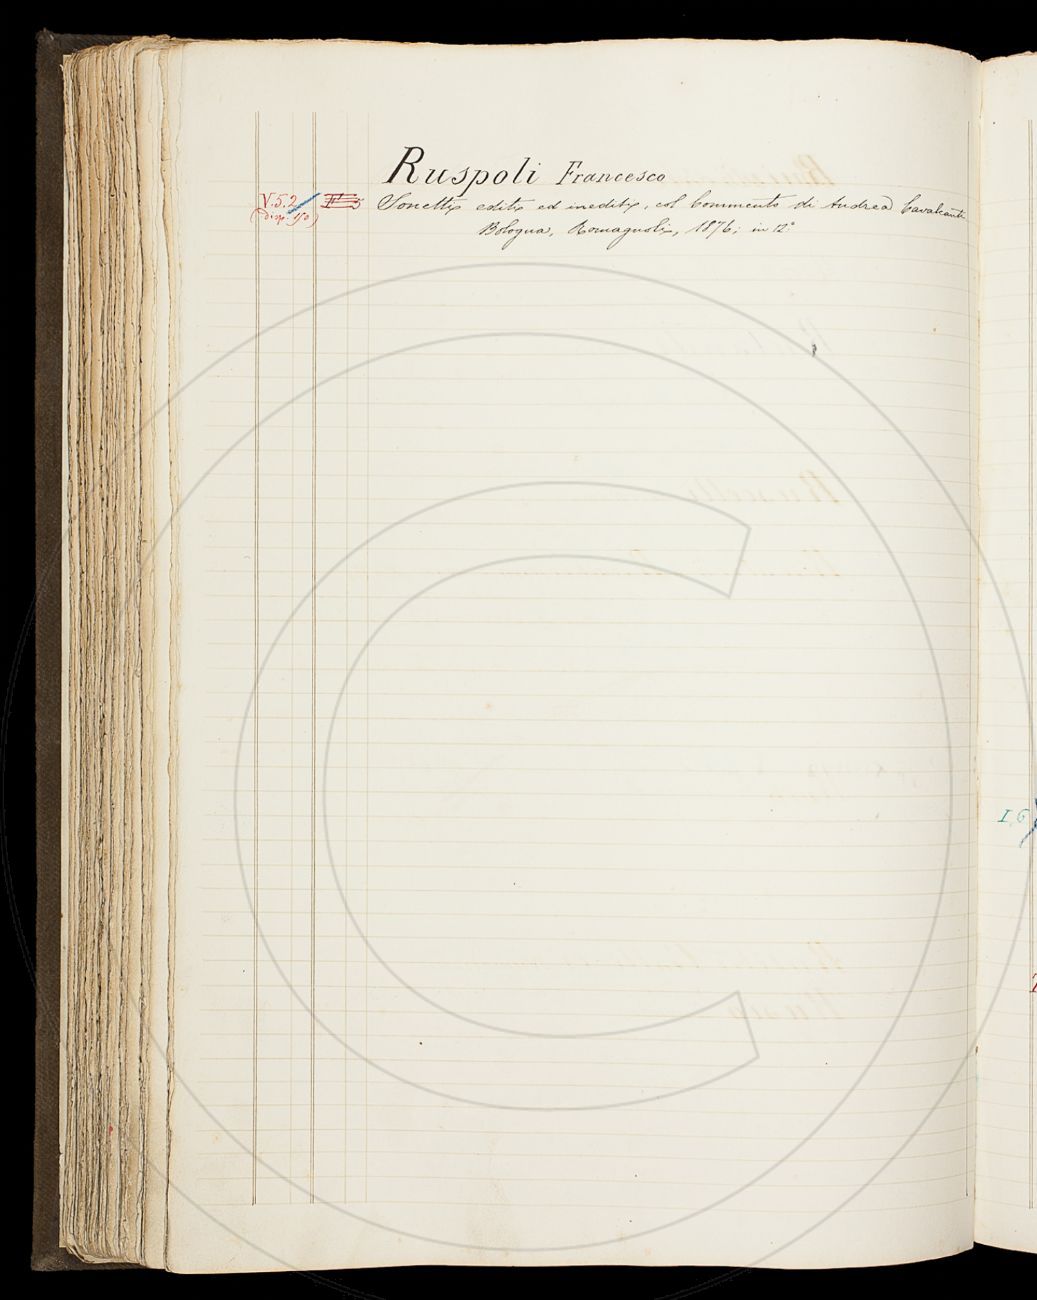 Ruspoli Francesco
V.5.2 Sonetti editi ed inediti, col Commento di Andrea Cavalcanti
(disp. 150) Bologna, Romagnoli, 1876; in 12°
I,6